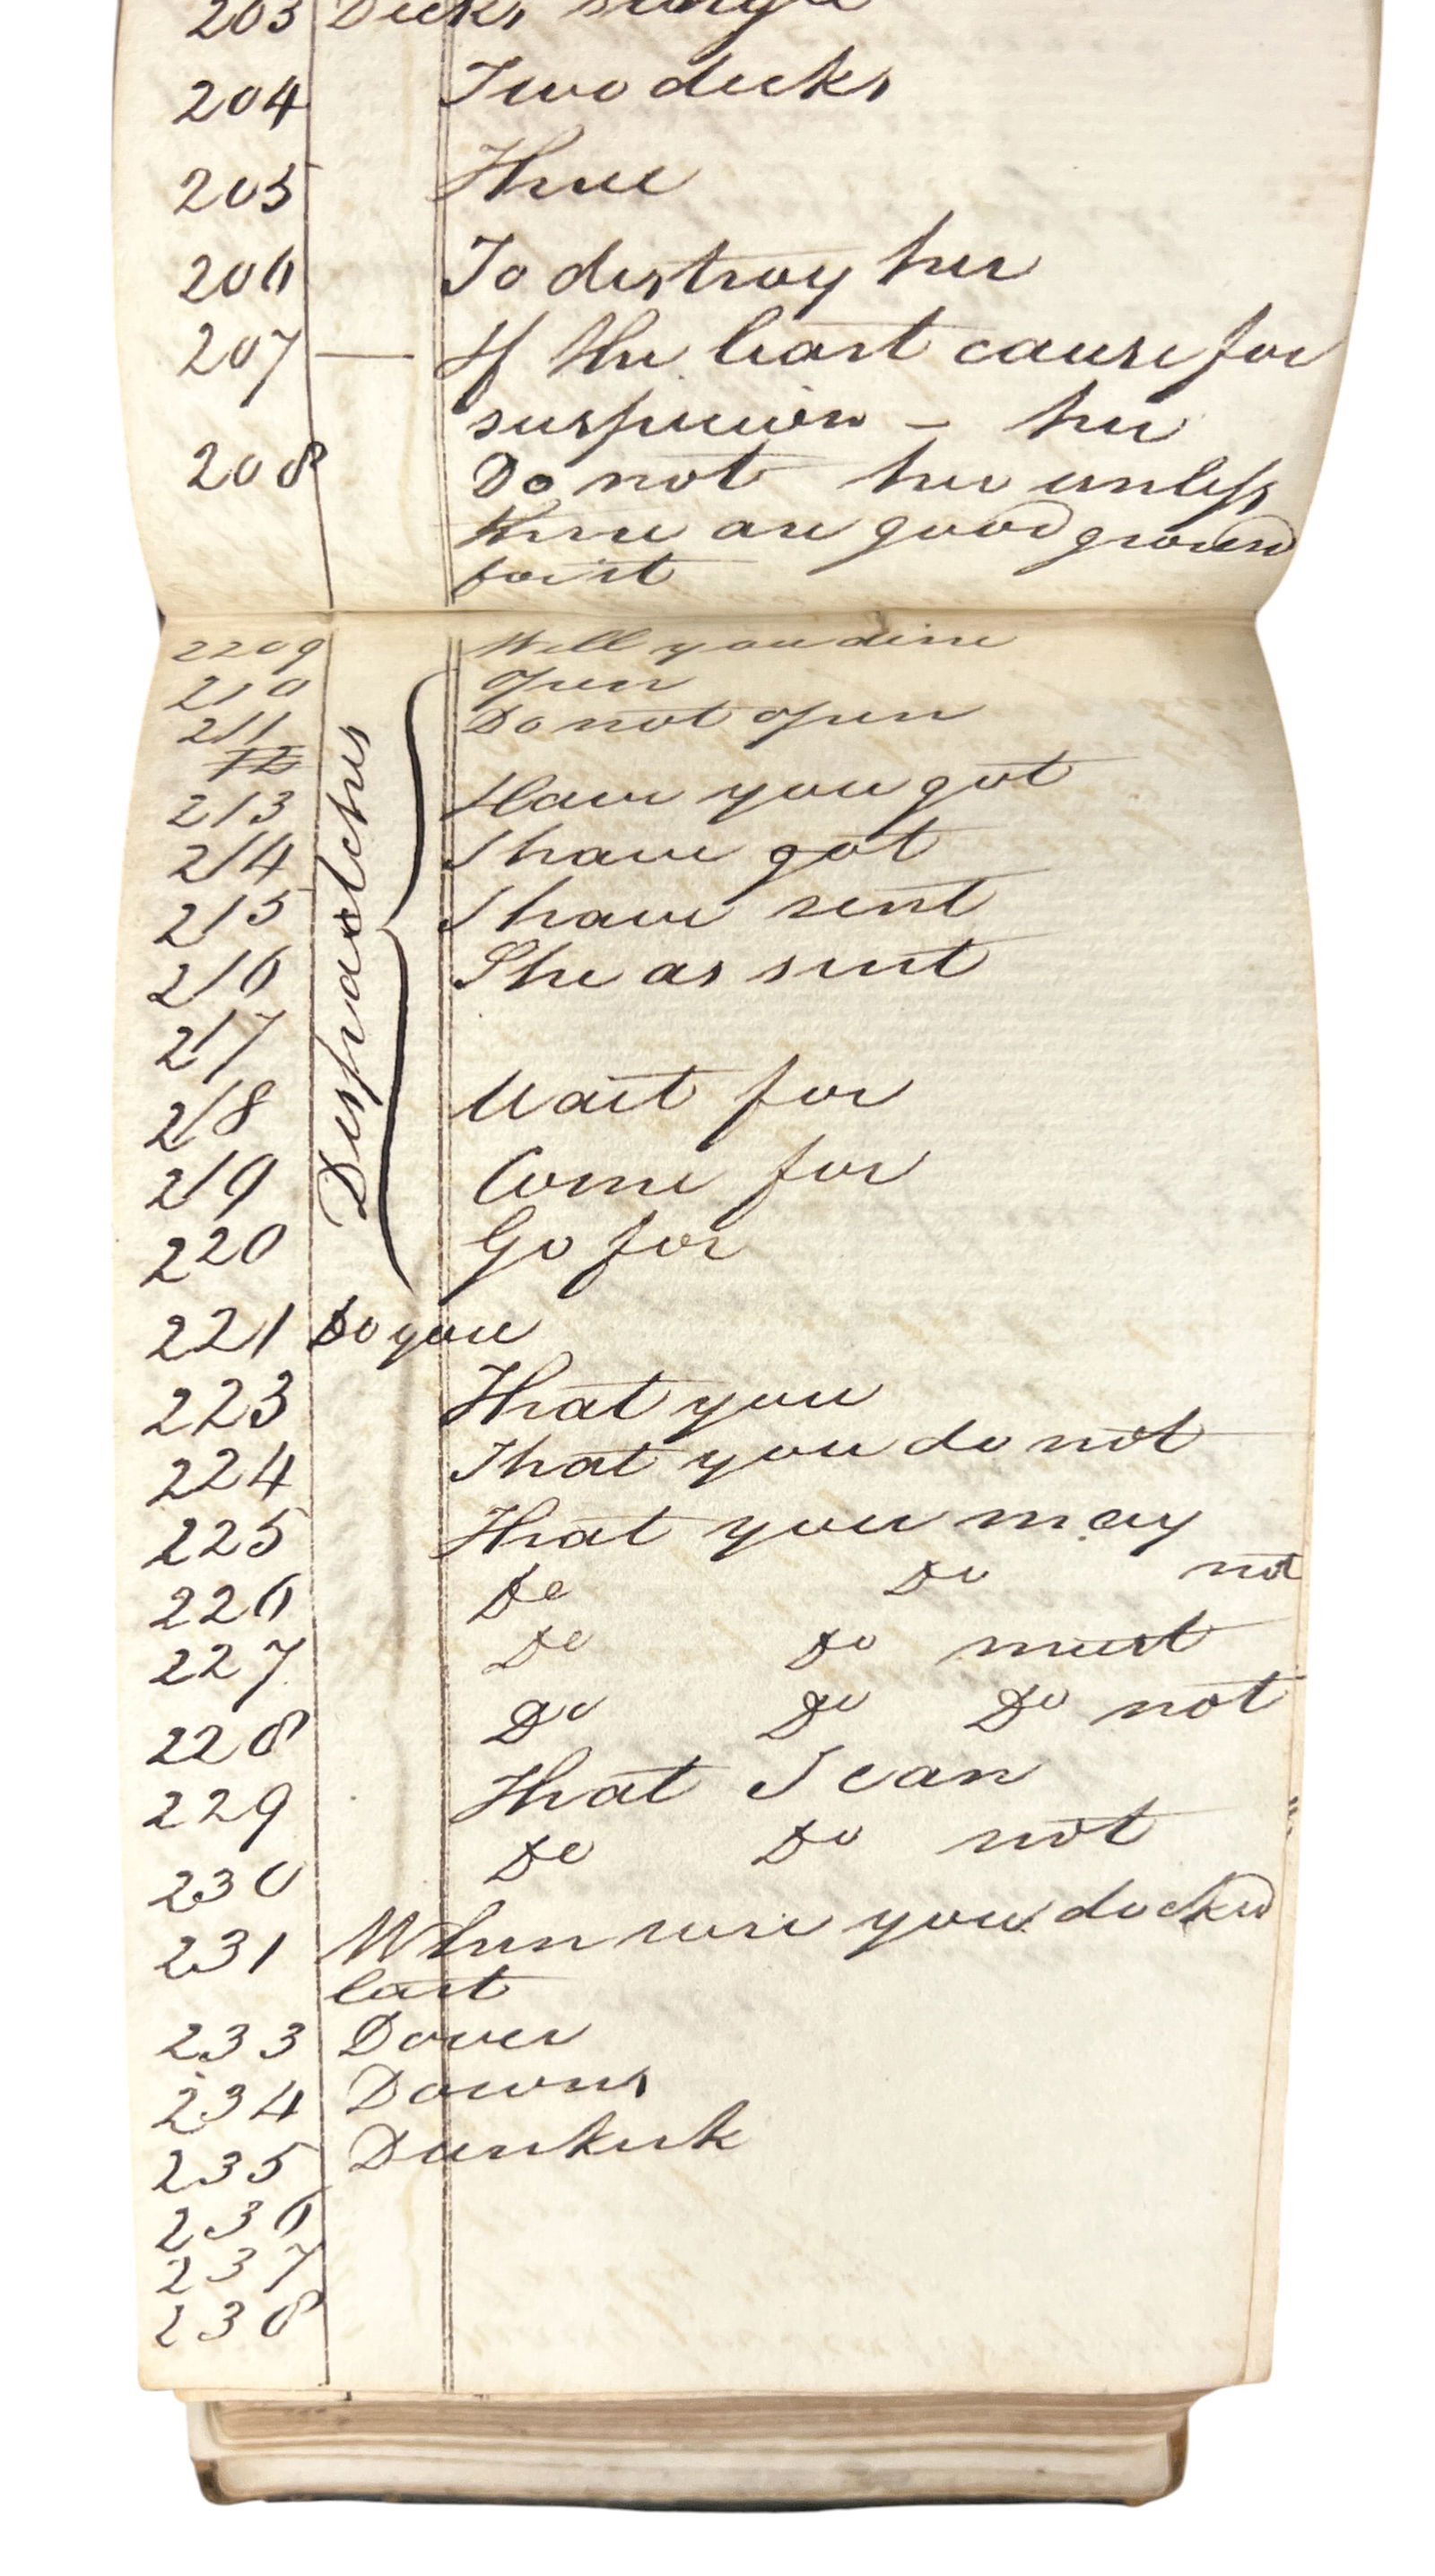 203 Decks single
204 Two decks
205 Three
206 To destroy her
207 — If the least cause for
suspicion – her
208 Do not her unless
there are good ground
for it
2209 Will you dine
210 Open
211 Do not open
12
213 Have you got
214 I have got
215 I have sent
216 She as sent
217
218 Wait for
219 Come for
220 Go for
Dispatches
221 Do you
223 That you
224 That you do not
225 That you may
226 Do Do not
227 Do Do must
228 Do Do Do not
229 That I can
230 Do Do not
231 When were you docked
last
233 Dover
234 Downs
235 Dunkirk
236
237
238